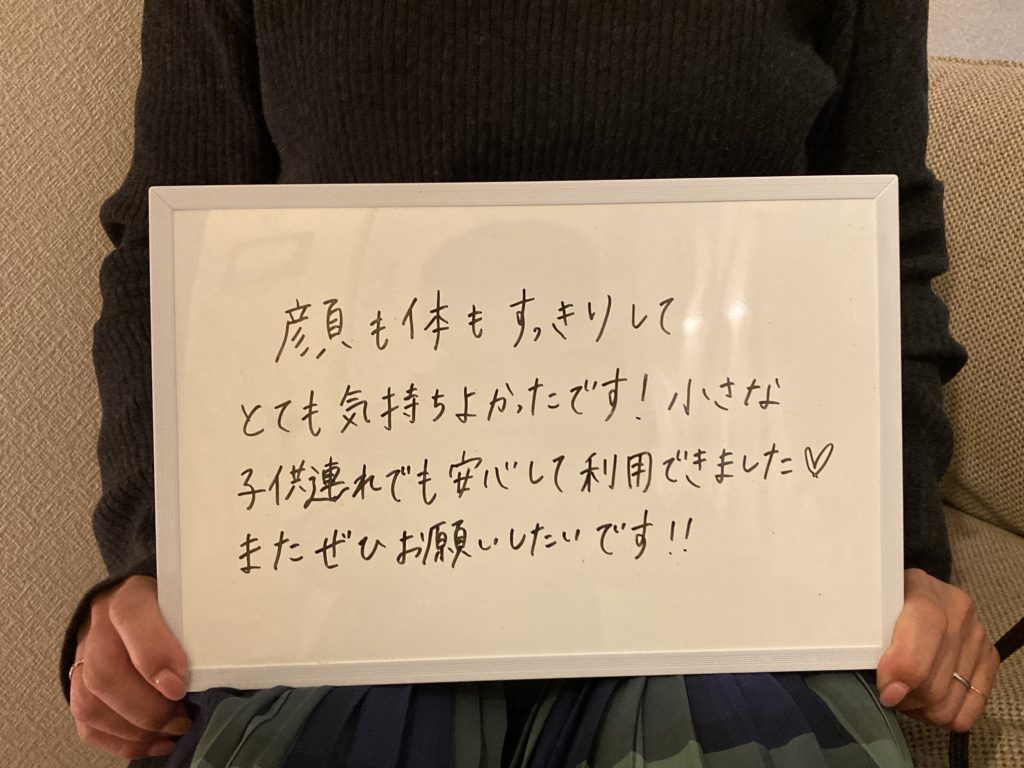 顔も体もすっきりして
とても気持ちよかったです！小さな
子供連れでも安心して利用できました♡
またぜひお願いしたいです!!